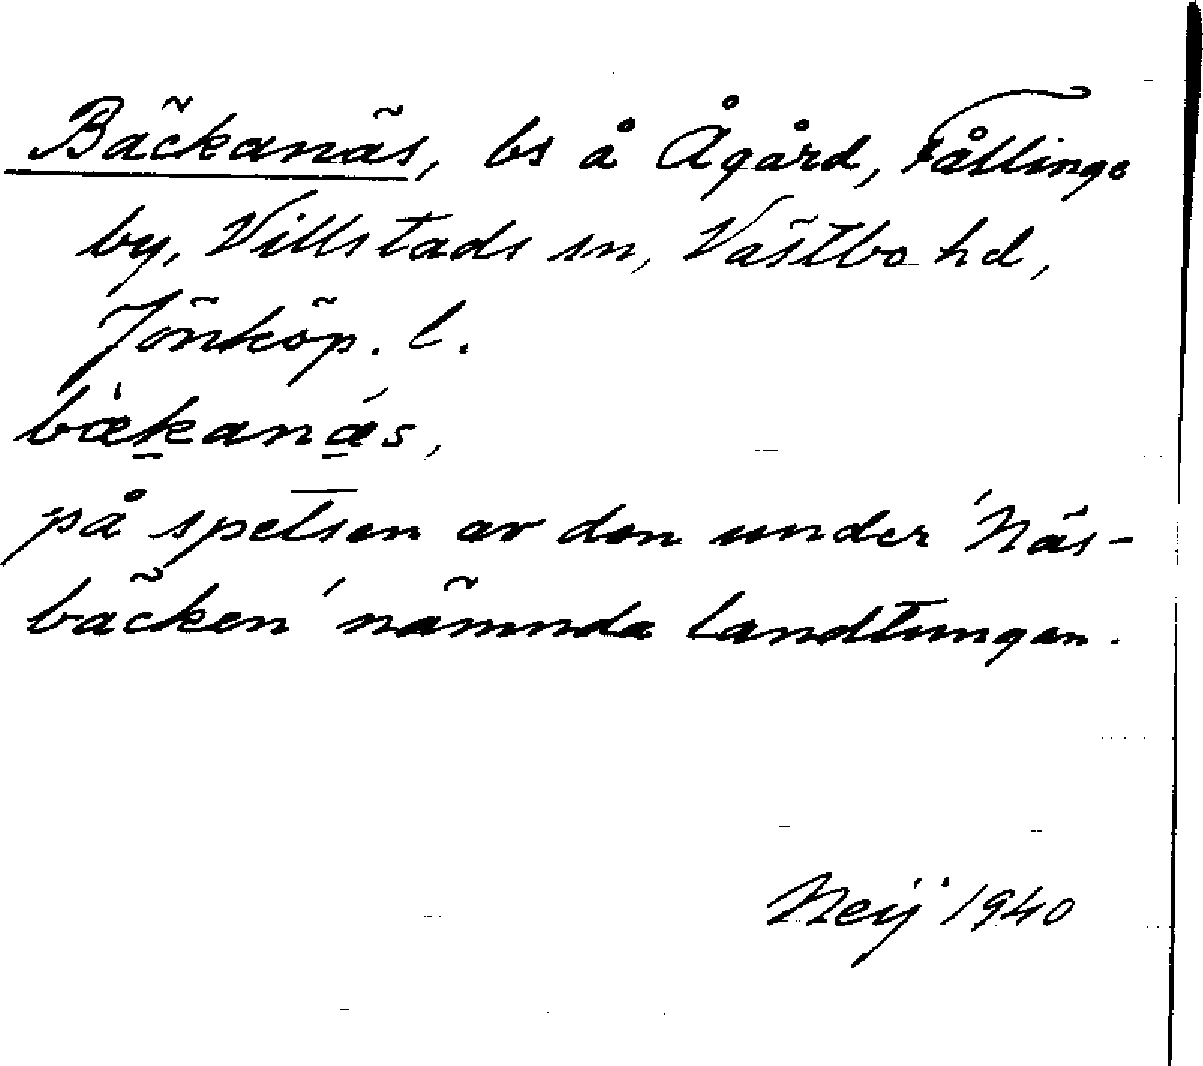 Bäckanäs, bs å Ågård, Fållinge
by, Villstads sn, Västbo hd,
Jönköp. l.
bæ̀kanæ´s,
på spetsen av den under 'Näs-
bäcken' nämnda landtungan.
Neij 1940